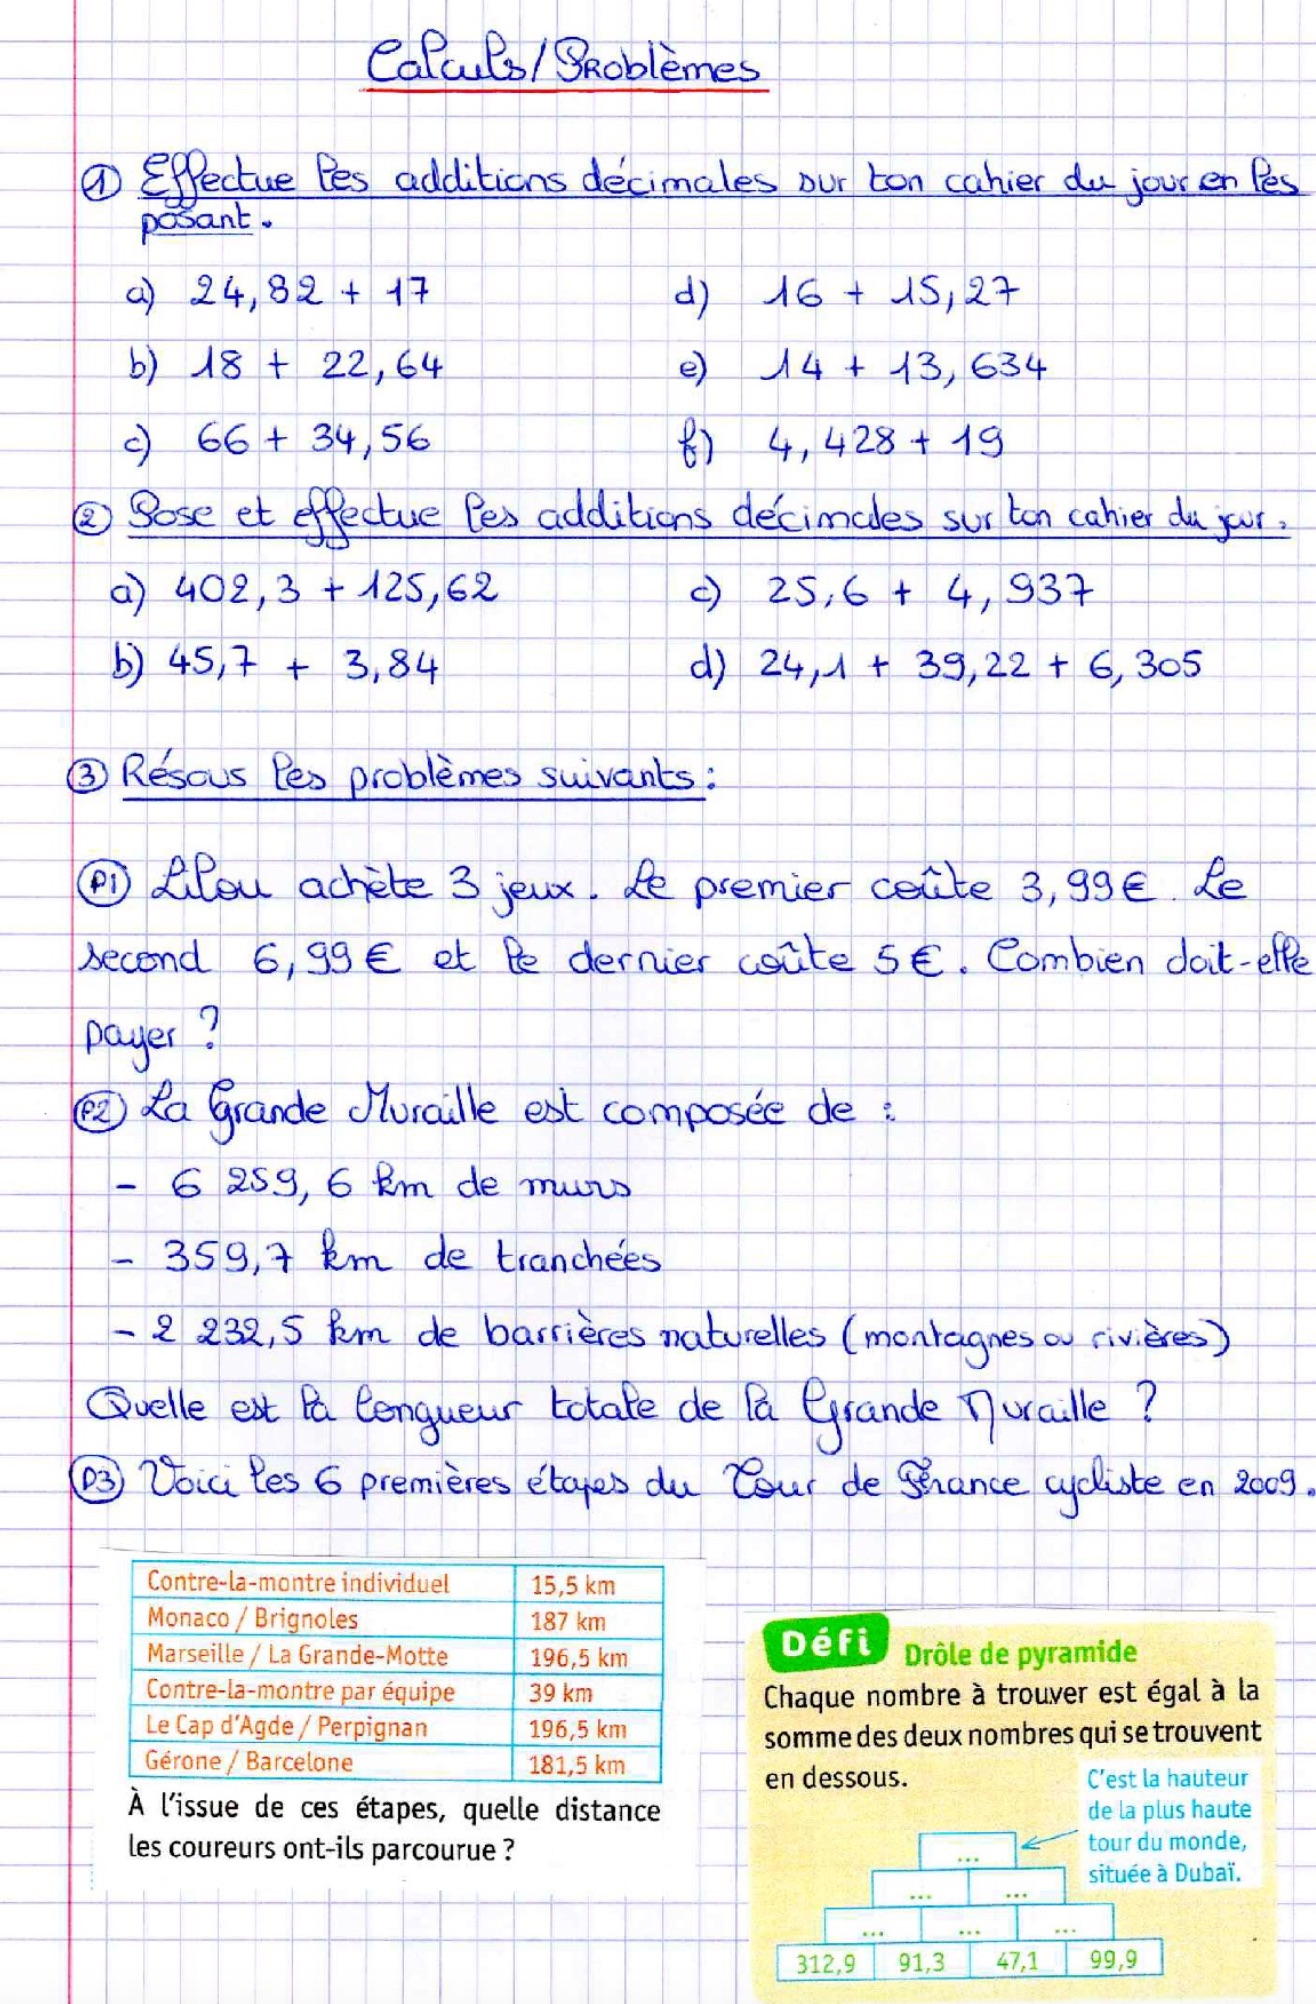 Calculs/Problèmes
① Effectue les additions décimales sur ton cahier du jour en les
posant.
a) 24,82 + 17
d) 16 + 15,27
b) 18 + 22,64
e) 14 + 13,634
c) 66 + 34,56
f) 4,428 + 19
② Pose et effectue les additions décimales sur ton cahier du jour.
a) 402,3 + 125,62
c) 25,6 + 4,937
b) 45,7 + 3,84
d) 24,1 + 39,22 + 6,305
③ Résous les problèmes suivants :
P1 Lilou achète 3 jeux. Le premier coûte 3,99€. Le
second 6,99€ et le dernier coûte 5€. Combien doit-elle
payer ?
P2 La Grande Muraille est composée de :
- 6 259,6 km de murs
- 359,7 km de tranchées
- 2 232,5 km de barrières naturelles (montagnes ou rivières)
Quelle est la longueur totale de la Grande Muraille ?
P3 Voici les 6 premières étapes du Tour de France cycliste en 2009.
Contre-la-montre individuel 15,5 km
Monaco / Brignoles 187 km
Marseille / La Grande-Motte 196,5 km
Contre-la-montre par équipe 39 km
Le Cap d'Agde / Perpignan 196,5 km
Gérone / Barcelone 181,5 km
À l'issue de ces étapes, quelle distance
les coureurs ont-ils parcourue ?
Défi Drôle de pyramide
Chaque nombre à trouver est égal à la
somme des deux nombres qui se trouvent
en dessous.
C'est la hauteur
de la plus haute
tour du monde,
située à Dubaï.
...
... ...
... ... ...
312,9 91,3 47,1 99,9